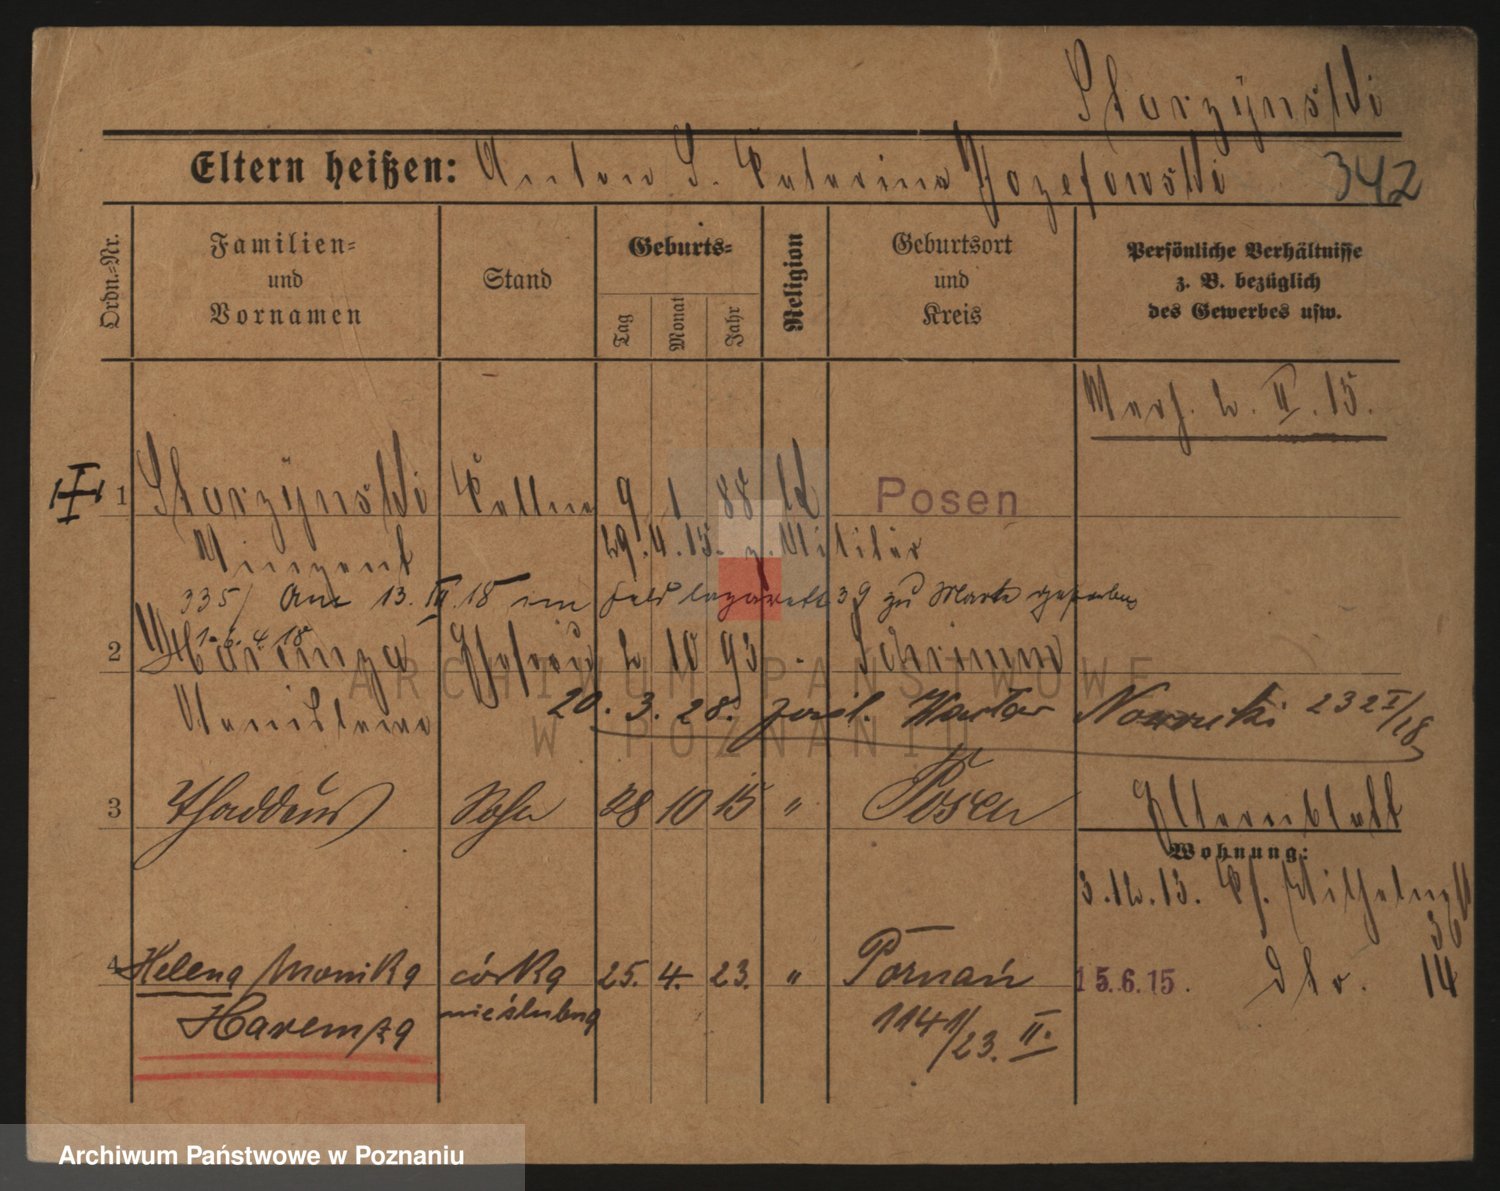 Starzynski
Eltern heißen: Anton S. Katarina Jozefowski 342
Ordn.=Nr.
Familien=
und
Vornamen
Stand
Geburts=
Tag
Monat
Jahr
Religion
Geburtsort
und
Kreis
Persönliche Verhältnisse
z. B. bezüglich
des Gewerbes usw.
II. 15.
1 Starzÿnski Kellner 9 1 88 Posen
Vinzent 29. 4. 15. z. Militär
335/ Am 13. III. 18 im Feldlazarett 39 zu Marke gestorben
2 Haremza Ehefrau 2 10 93 Schrimm
Stanislawa
20. 3. 28. Nowicki 232 I/18
3 Thaddeus Sohn 28 10 15 " Posen
Elternblatt
Wohnung:
3. 12. 13. Wilhelmst
36
4 Helena Monika córka 25. 4. 23. " Poznań
15.6.15. dto. 14
Haremza nieślubna 1141/23. II.
ARCHIWUM PAŃSTWOWE
W POZNANIU
Archiwum Państwowe w Poznaniu